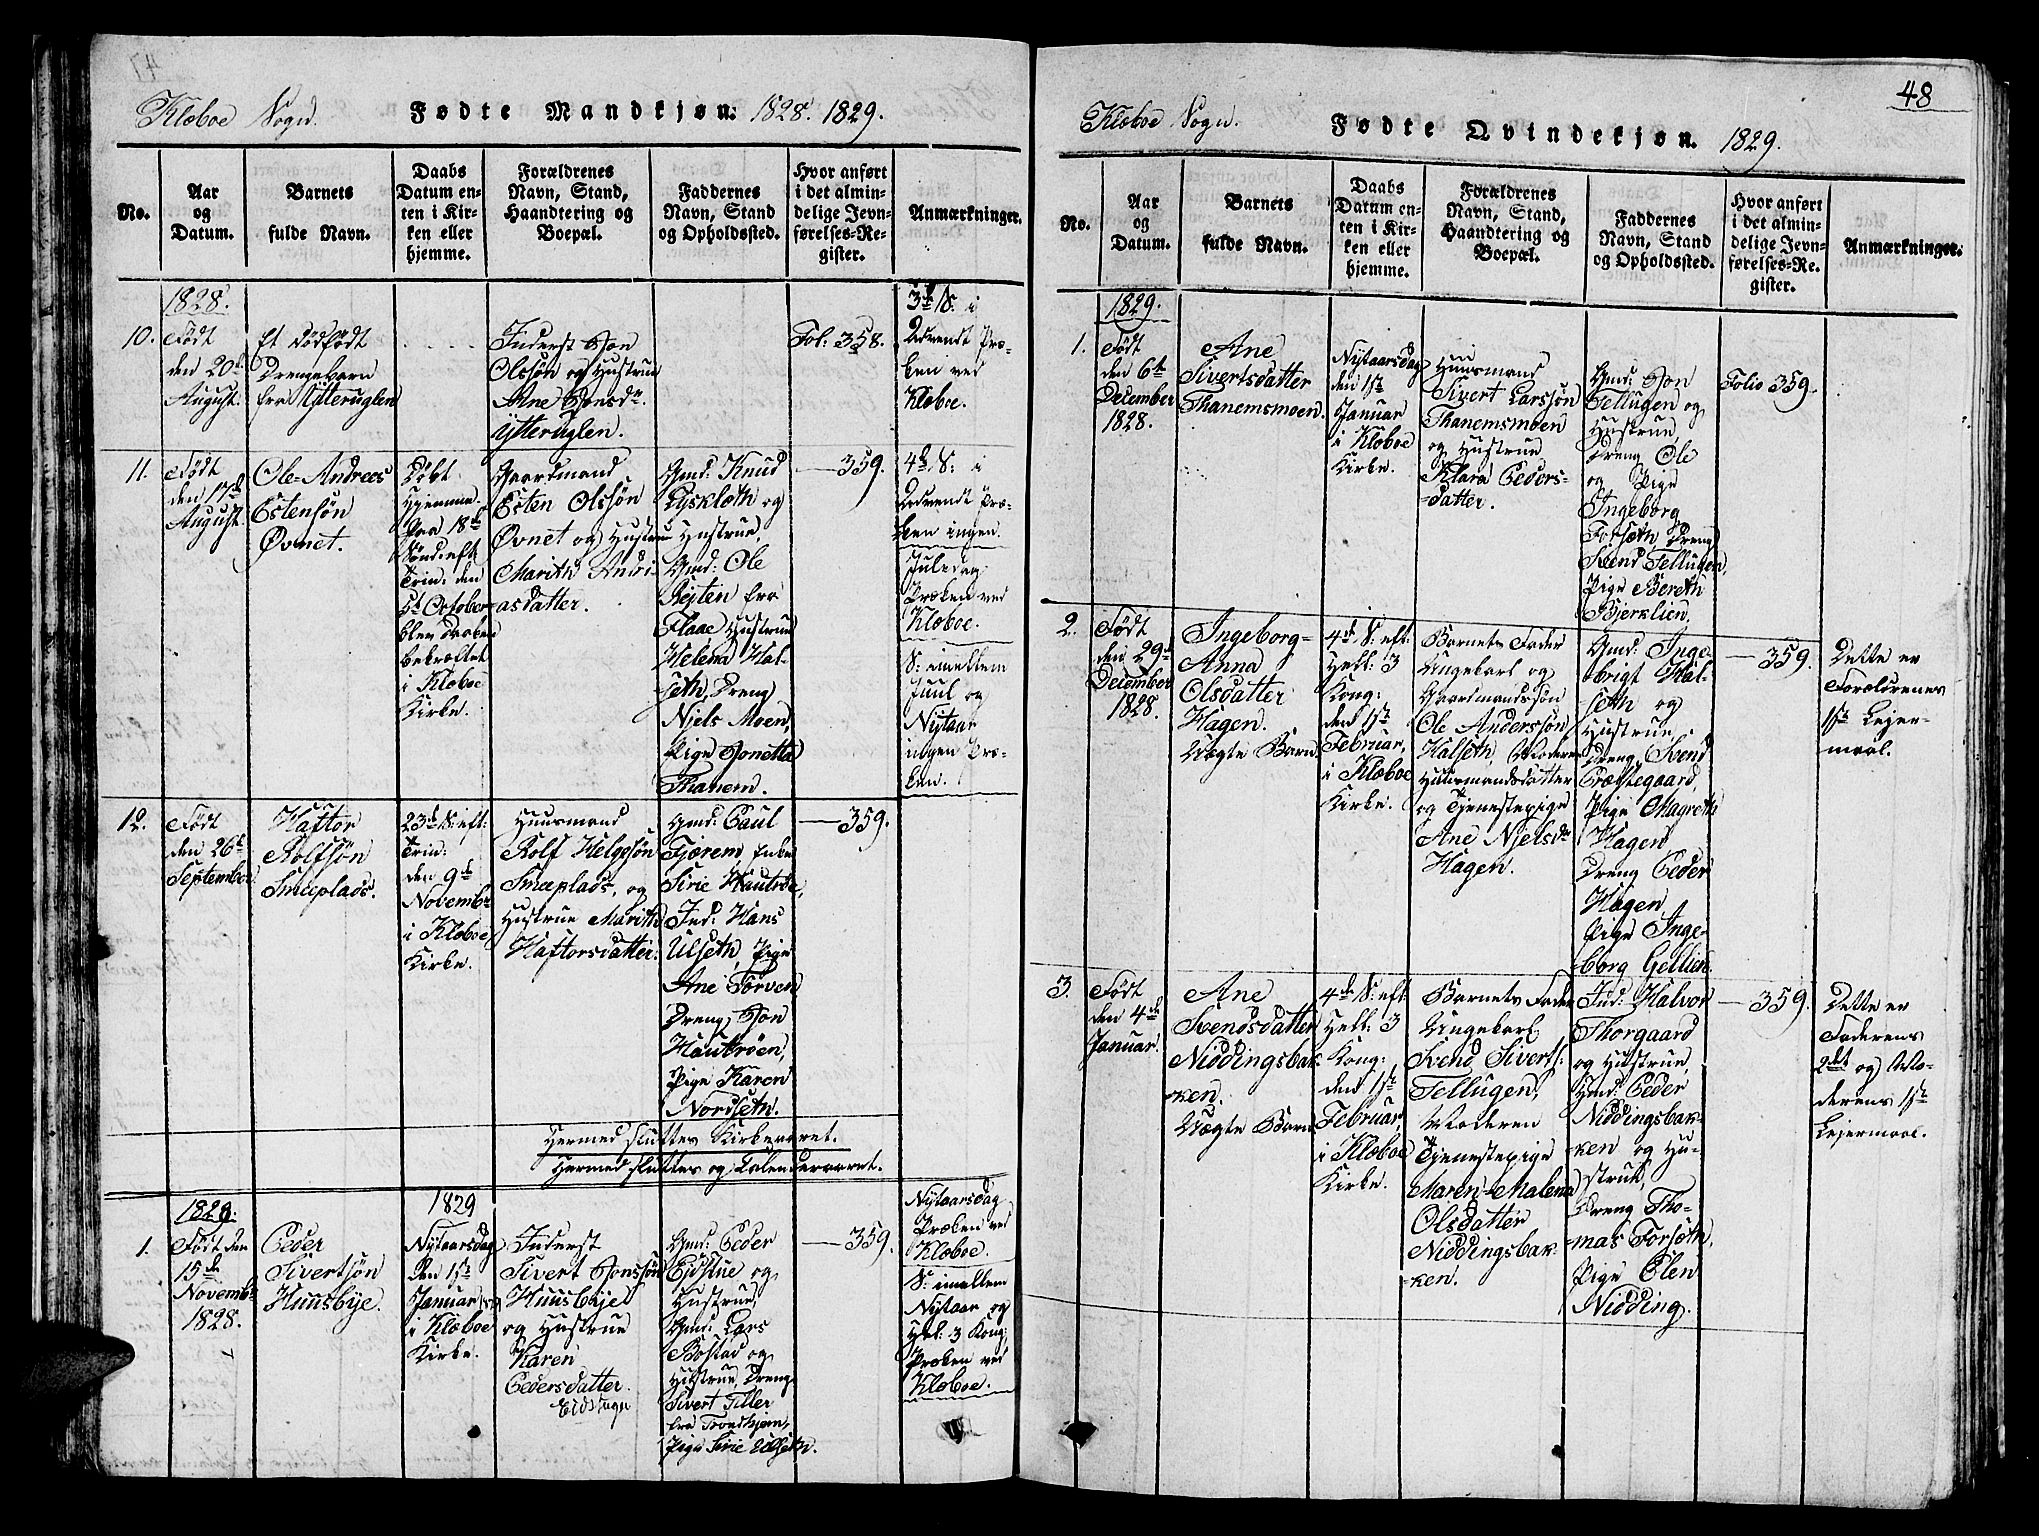 Klæboe Sogn. Fødte Mandkjøn: 1828. 1829.
No.
Aar
og
Datum.
Barnets
fulde Navn.
Daabs
Datum en-
ten i Kir-
ken eller
hjemme.
Forældrenes
Navn, Stand,
Haandtering og
Boepæl.
Faddernes
Navn, Stand
og Opholdssted.
Hvor anført
i det almin-
delige Jevn-
førelses-Re-
gister.
Anmærkninger.
1828.
10.
Født
den 20de
August.
Et dødfødt
Drengebarn
fra Ytteruglen
Inderst Jon
Olssøn og Hustrue
Ane Jonsdr.
Ytteruglen.
Fol: 358.
3de S: i
Advendt Præ-
ken ved
Klæboe.
11.
Født
den 17de
August.
Ole-Andreas
Estensøn
Øvnet.
Døbt
hjemme.
Paa 18de
Sønd: eft
Trin: den
5t October
blev Daaben
bekræftet
i Klæboe
Kirke.
Gaardmand
Esten Olssøn
Øvnet og Hustrue
Marith Andri-
asdatter.
Gmd: Knud
Lysklæth og
Hustrue,
Gmd: Ole
Rejten fra
Flaae Hustrue
Helena Hal-
seth, Dreng
Niels Moen,
Pige Jonetta
Thanem.
359.
4de S: i
Advendt Præ-
ken ingen.
Juledag
Præken ved
Klæboe.
S: imellem
Juul og
Nytaar
ingen Præ-
ken.
12.
Født
den 26de
September
Haftor
Rolfsøn
Smeeplads.
23de S: eft:
Trin:
den 9de
Novembr
i Klæboe
Kirke.
Huusmand
Rolf Helgesøn
Smeeplads, og
Hustrue Marith
Haftorsdatter.
Gmd: Paul
Fjærem, Enke
Sirie Hautrøe,
Ind: Hans
Ulseth, Pige
Ane Torven
Dreng Jon
Hautrøen,
Pige Karen
Nordseth.
359.
Hermed sluttes Kirkeaaret.
Hermed sluttes og Calenderaaret.
1829.
1.
Født den
15de
Novembr
1828.
Peder
Sivertsøn
Huusbye.
1829
Nytaarsdag
den 1ste
Januar
i Klæboe
Kirke.
Inderst
Sivert Jonssøn
Huusbye
og Hustrue
Karen
Pedersdatter.
Gmd: Peder
Eidstue og
Hustrue,
Gmd: Lars
Bostad og
Hustrue, Dreng
Sivert Tiller
fra Trondhjem,
Pige Sirie Ulseth.
359.
Nytaarsdag
Præken ved
Klæboe.
S: imellem
Nytaar og
Hel: 3 Kong:
Præken ved
Klæboe.
48
Klæboe Sogn. Fødte Qvindekjøn. 1829.
No.
Aar
og
Datum.
Barnets
fulde Navn.
Daabs
Datum en-
ten i Kir-
ken eller
hjemme.
Forældrenes
Navn, Stand,
Haandtering og
Boepæl.
Faddernes
Navn, Stand
og Opholdssted.
Hvor anført
i det almin-
delige Jevn-
førelses-Re-
gister.
Anmærkninger.
1829.
1.
Født
den 6te
December
1828.
Ane
Sivertsdatter
Thanemsmoen.
Nytaarsdag
den 1ste
Januar
i Klæboe
Kirke.
Huusmand
Sivert Larssøn
Thanemsmoen
og Hustrue
Klara Peders-
datter.
Gmd: Jon
Tellugen og
Hustrue,
Dreng Ole
og Pige
Ingeborg
Forsæth Dreng
Svend Tellugen,
Pige Bereth
Bjerklien.
Folio 359.
2.
Født
den 29de
December
1828.
Ingeborg-
Anna
Olsdatter
Hagen.
Uægte Barn
4de S: eft:
Hell: 3
Kong:
den 1ste
Februar,
i Klæboe
Kirke.
Barnets Fader
Ungekarl og
Gaardmandssøn
Ole Anderssøn
Halseth, Moderen
Huusmandsdatter
og Tjenestepige
Ane Njelsdr
Hagen.
Gmd: Inge-
brigt Hal-
seth og
Hustrue,
Dreng Svend
Præstegaard,
Pige Magreth
Hagen
Dreng Peder
Hagen
Pige Inge-
borg Gellien.
359.
Dette er
Forældrenes
1ste Lejer-
maal.
3.
Født
den 4de
Januar.
Ane
Svendsdatter
Niddingsbak-
ken.
Uægte Barn
4de S: eft
Hell: 3
Kong:
den 1ste
Februar,
i Klæboe
Kirke.
Barnets Fader
Ungekarl
Svend Siverts:
Tellugen,
Moderen
Tjenestepige
Maren-Malena
Olsdatter
Niddingsbak-
ken.
Ind: Halvor
Thorgaard
og Hustrue,
Gmd: Peder
Niddingsbak-
ken og Hu-
strue,
Dreng Tho-
mas Forsæth,
Pige Elen
Nidding.
359.
Dette er
Faderens
2det og Mo-
derens 1ste
Lejermaal.